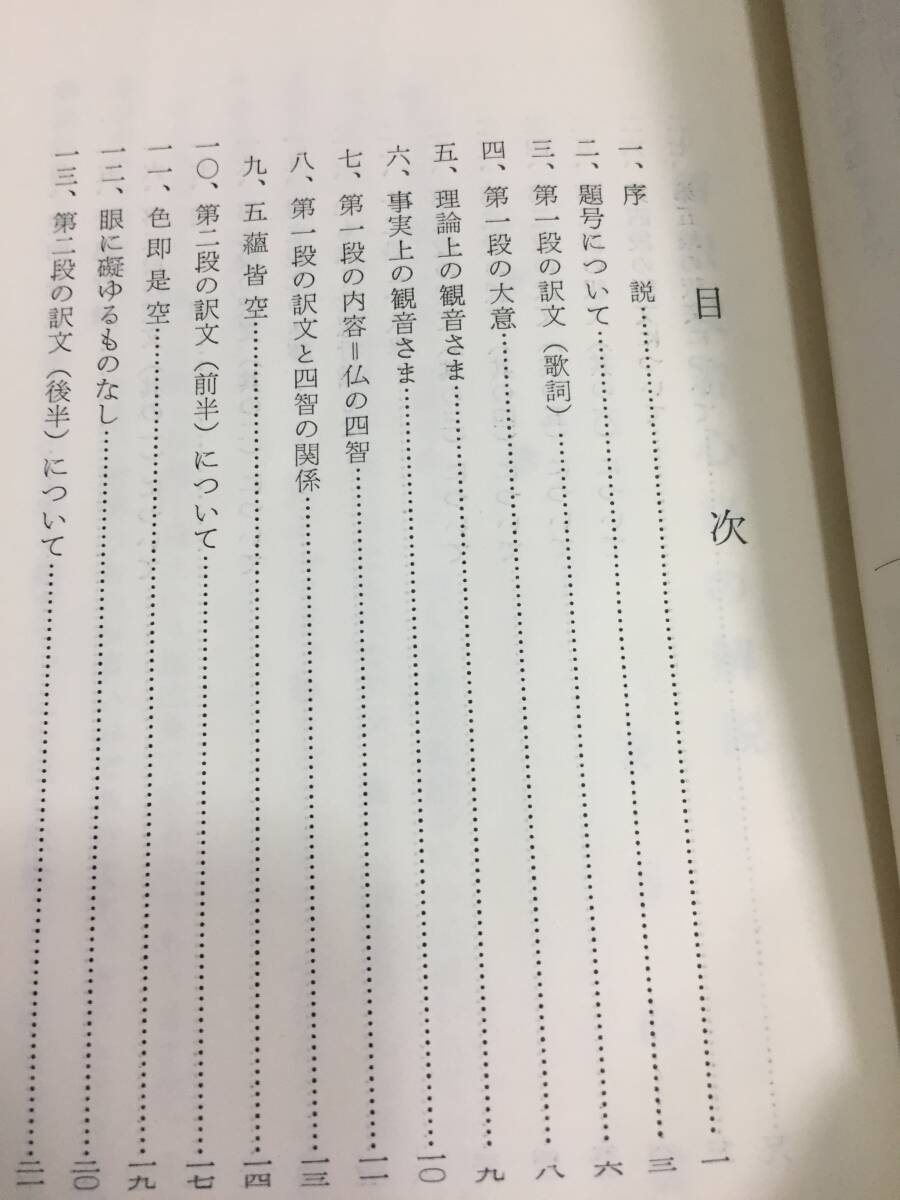 目次
一、序説……一
二、題号について……三
三、第一段の訳文（歌詞）……六
四、第一段の大意……八
五、理論上の観音さま……九
六、事実上の観音さま……一〇
七、第一段の内容＝仏の四智……一一
八、第一段の訳文と四智の関係……一三
九、五蘊皆空……一四
一〇、第二段の訳文（前半）について……一七
一一、色即是空……一九
一二、眼に礙ゆるものなし……二〇
一三、第二段の訳文（後半）について……二一